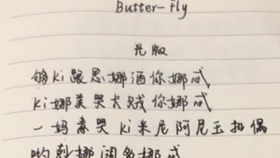 Butter-Fly
光敏
够ki跟思娜酒你娜咸
ki娜美哭太贱你娜咸
一妈素哭ki米尼阿尼玉扣偶
哟刹娜闷多娜咸